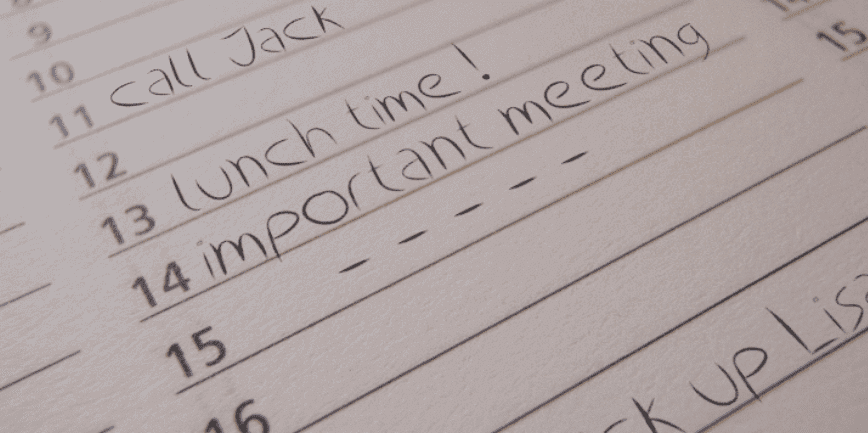 9
10
11 call Jack
12
13 lunch time!
14 important meeting
15 - - - - -
16
14
15
up